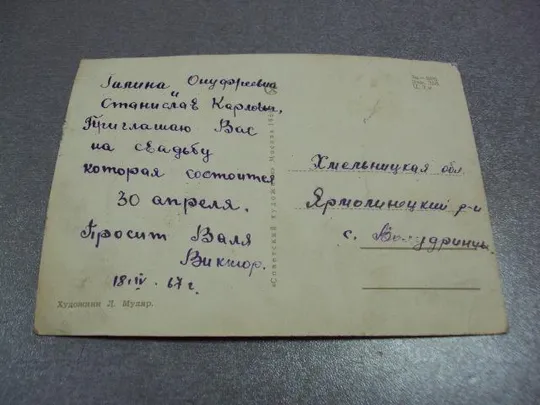 Галина Онуфриевна
и
Станислав Карлович,
Приглашаю Вас
на свадьбу
которая состоится
30 апреля.
Просит Валя
Виктор.
18.IV.67г.
Художник Л. Муляр.
«Советский художник» Москва
Хмельницкая обл.
Ярмолинецкий р-н
с.